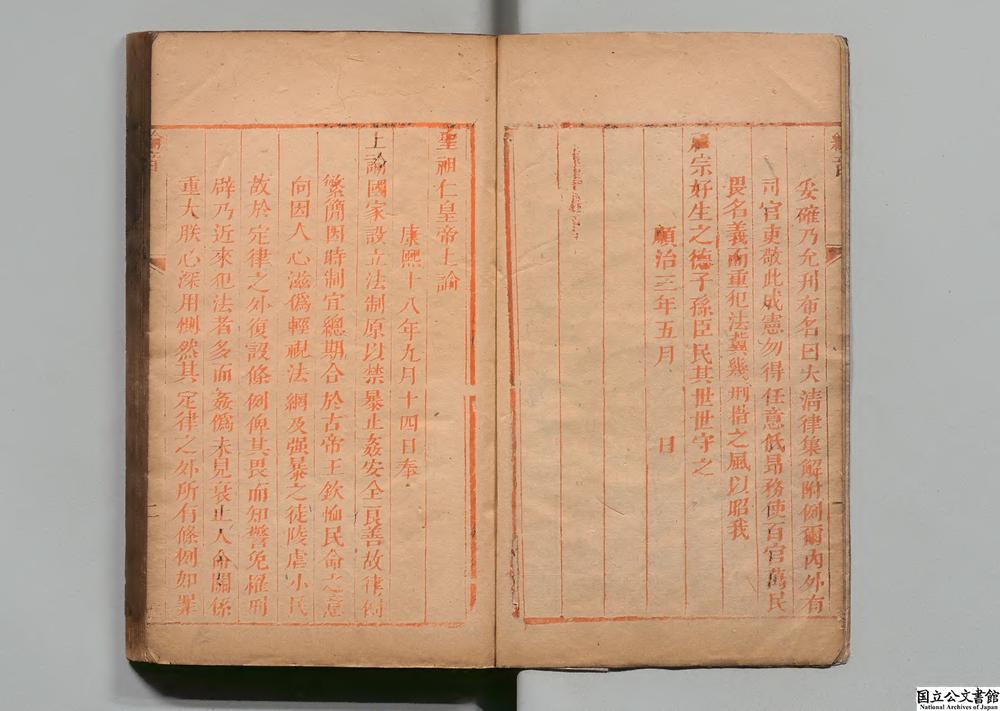 妥確乃允刊布名曰大清律集解附例爾內外有
司官吏敬此成憲勿得任意低昻務使百官萬民
畏名義而重犯法冀幾刑措之風以昭我
祖宗好生之德子孫臣民其世世守之
順治三年五月 日
聖祖仁皇帝上諭
康熙十八年九月十四日奉
上諭國家設立法制原以禁暴止姦安全良善故律例
繁簡因時制宜總期合於古帝王欽恤民命之意
向因人心滋僞輕視法網及强暴之徒陵虐小民
故於定律之外復設條例俾其畏而知警免罹刑
辟乃近來犯法者多而姦僞未見衰止人命關係
重大朕心深用惻然其定律之外所有條例如罪
二
国立公文書館
National Archives of Japan